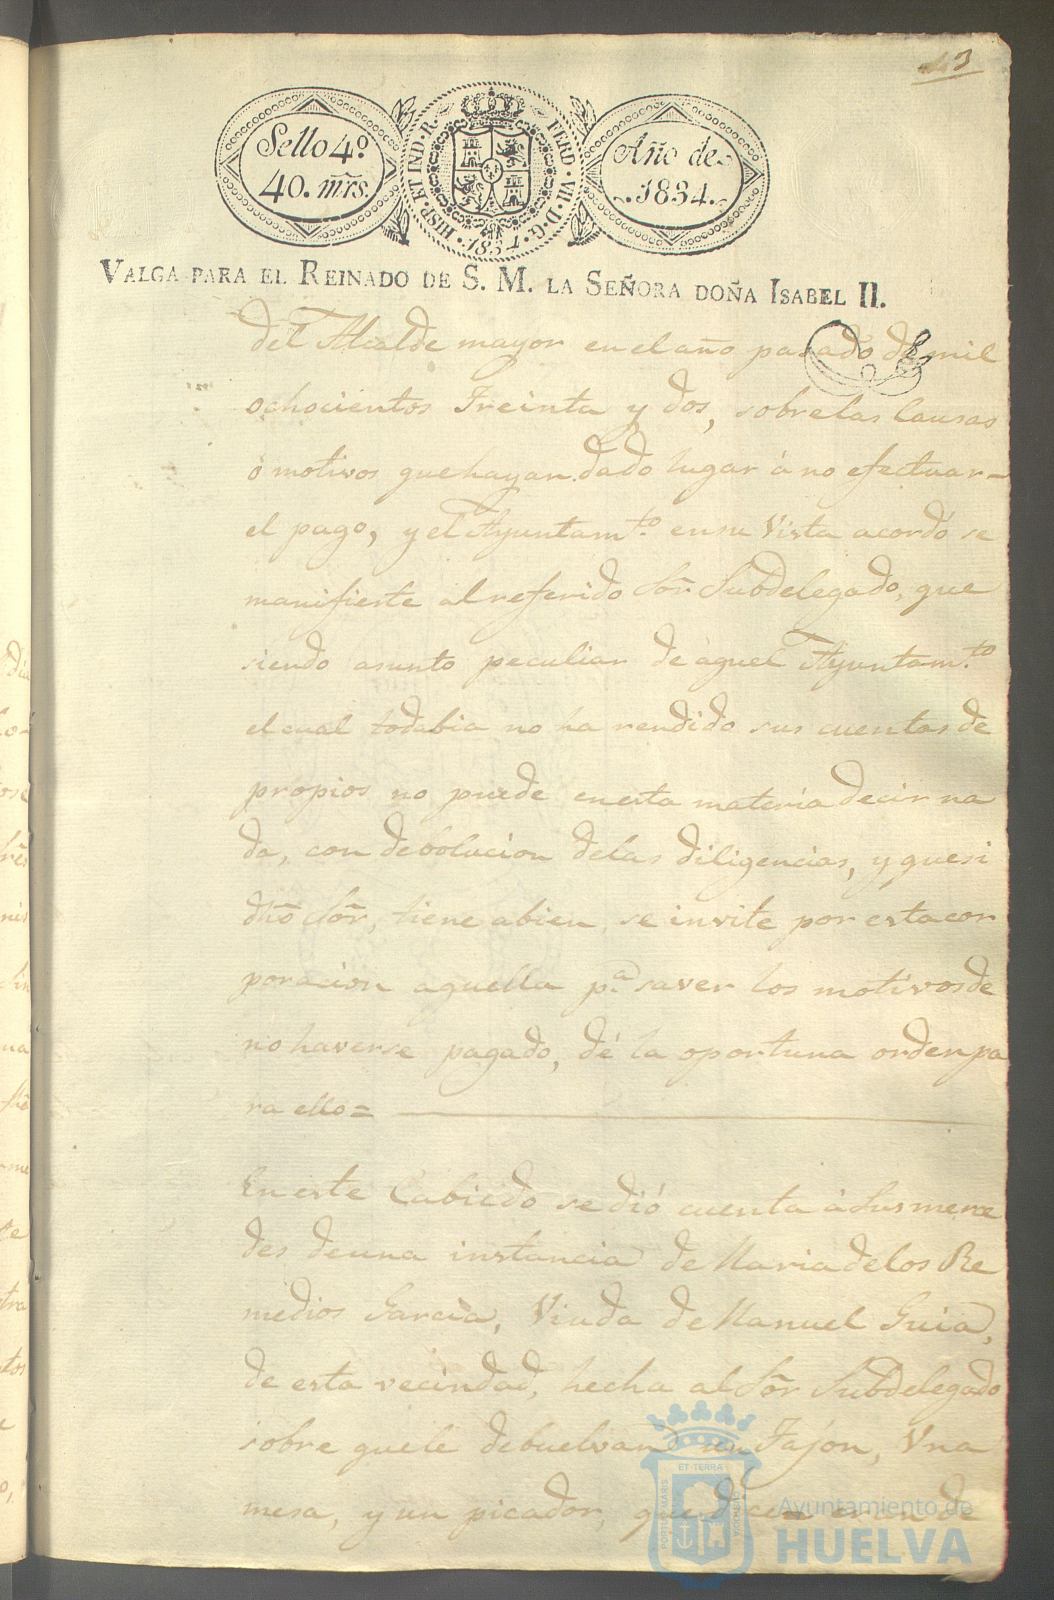 43
Sello 4º
40. mrs.
HISP. ET IND. R.
FERD. VII. D. G.
1834
Año de
1834.
VALGA PARA EL REINADO DE S. M. LA SEÑORA DOÑA ISABEL II.
del Alcalde mayor en el año pasado de mil
ochocientos Treinta y dos, sobre las causas
ó motivos que hayan dado lugar á no efectuar
el pago, y el Ayuntam.to en su Vista acordó se
manifieste al referido Sõr Subdelegado, que
siendo asunto peculiar de àquel Ayuntam.to
el cual todabia no ha rendido sus cuentas de
propios no puede en esta materia decir na
da, con debolucion delas diligencias, y que si
dhõ Sõr, tiene abien se invite por esta cor
poracion aquella p.a saver los motivos de
no haverse pagado, dé la oportuna orden pa
ra ello=
En este Cabildo se dió cuenta à Sus merce
des de una instancia de Maria delos Re
medios Garcia, Viuda de Manuel Guia,
de esta vecindad, hecha al Sõr Subdelegado
sobre que le debuelvan un Tajon, Vna
mesa, y un picador, que dicen eran de
PORTUS MARIS
ET TERRA
CUSTODIA
Ayuntamiento de
HUELVA